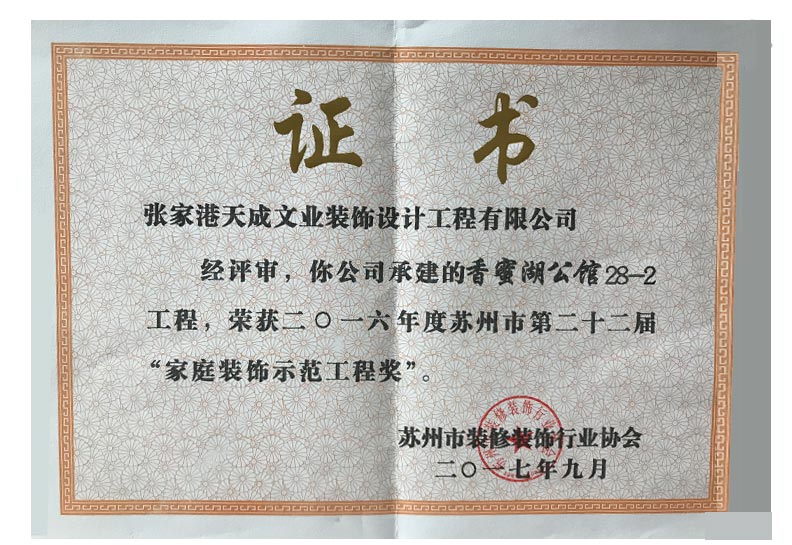 证 书
张家港天成文业装饰设计工程有限公司
经评审，你公司承建的香蜜湖公馆28-2
工程，荣获二〇一六年度苏州市第二十二届
“家庭装饰示范工程奖”。
苏州市装修装饰行业协会
二〇一七年九月